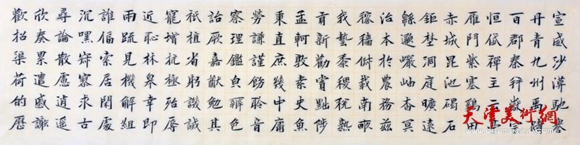 宣威沙漠馳譽
丹青九州禹跡
百郡秦并嶽宗
恒岱禪主云亭
雁門紫塞雞田
赤城昆池碣石
鉅野洞庭曠遠
緜邈巖岫杳冥
治本於農務茲
稼穡俶載南畝
我藝黍稷稅熟
貢新勸賞黜陟
孟軻敦素史魚
秉直庶幾中庸
勞謙謹敕聆音
察理鑑貌辨色
貽厥嘉猷勉其
祗植省躬譏誡
寵增抗極殆辱
近恥林皋幸即
兩疏見機解組
誰逼索居閑處
沉默寂寥求古
尋論散慮逍遙
欣奏累遣慼謝
歡招渠荷的歷
天津美術網